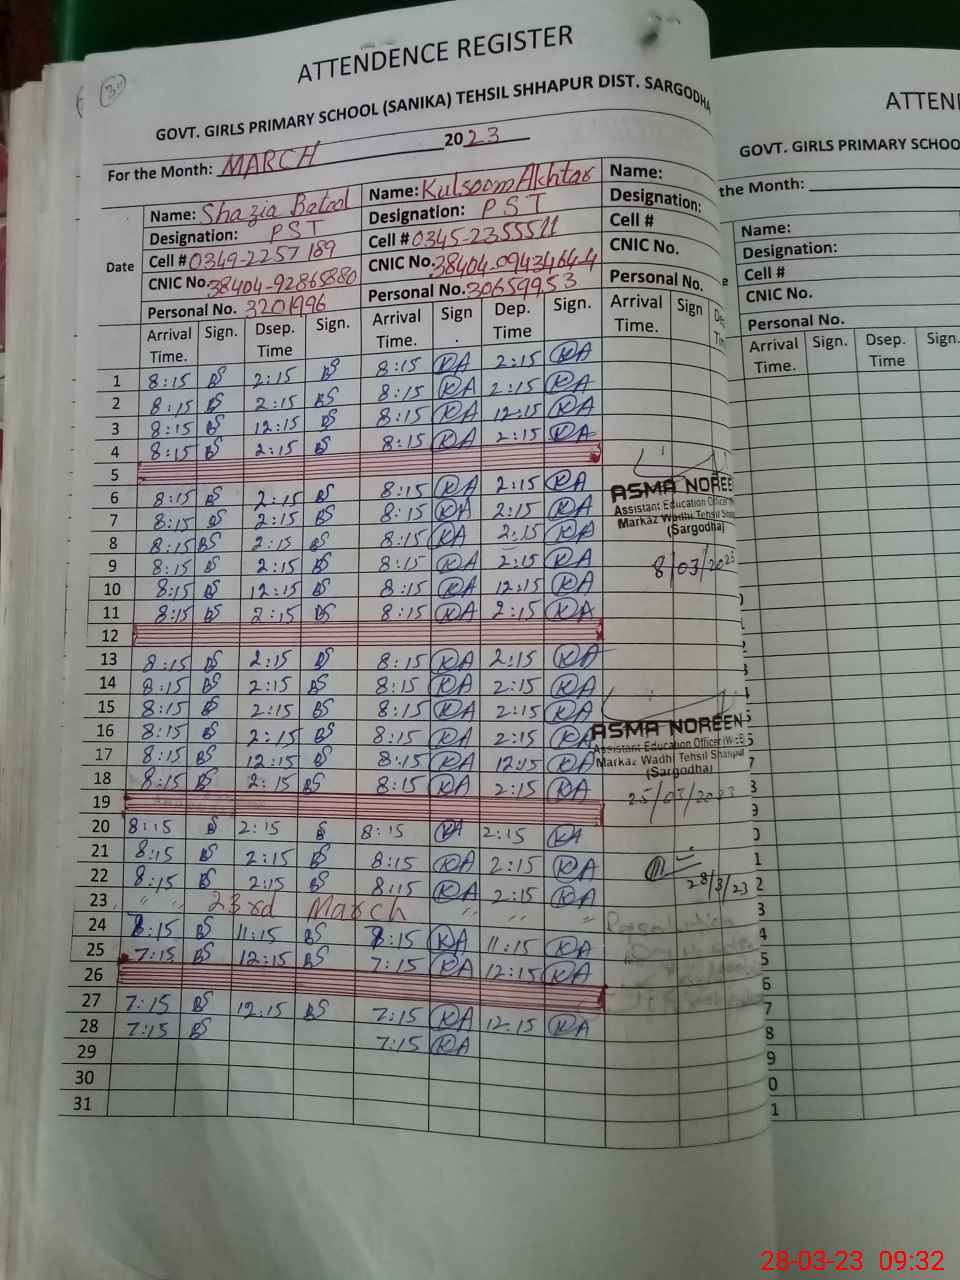 ATTENDENCE REGISTER
GOVT. GIRLS PRIMARY SCHOOL (SANIKA) TEHSIL SHHAPUR DIST. SARGODHA
For the Month: MARCH 2023
Date
Name: Shazia Batool Name: Kulsoom Akhtar Name:
Designation: PST Designation: PST Designation:
Cell # 0349-2257189 Cell # 0345-2355511 Cell #
CNIC No. 38404-92865880 CNIC No. 38404-0943464-4 CNIC No.
Personal No. 3201996 Personal No. 30659953 Personal No.
Arrival Time. Sign. Dsep. Time Sign. Arrival Time. Sign Dep. Time Sign. Arrival Time. Sign
1 8:15 BS 2:15 BS 8:15 KA 2:15 KA
2 8:15 BS 2:15 BS 8:15 KA 2:15 KA
3 8:15 BS 12:15 BS 8:15 KA 12:15 KA
4 8:15 BS 2:15 BS 8:15 KA 2:15 KA
5
6 8:15 BS 2:15 BS 8:15 KA 2:15 KA
7 8:15 BS 2:15 BS 8:15 KA 2:15 KA
8 8:15 BS 2:15 BS 8:15 KA 2:15 KA
9 8:15 BS 2:15 BS 8:15 KA 2:15 KA
10 8:15 BS 12:15 BS 8:15 KA 12:15 KA
11 8:15 BS 2:15 BS 8:15 KA 2:15 KA
12
13 8:15 BS 2:15 BS 8:15 KA 2:15 KA
14 8:15 BS 2:15 BS 8:15 KA 2:15 KA
15 8:15 BS 2:15 BS 8:15 KA 2:15 KA
16 8:15 BS 2:15 BS 8:15 KA 2:15 KA
17 8:15 BS 12:15 BS 8:15 KA 12:15 KA
18 8:15 BS 2:15 BS 8:15 KA 2:15 KA
19
20 8:15 BS 2:15 BS 8:15 KA 2:15 KA
21 8:15 BS 2:15 BS 8:15 KA 2:15 KA
22 8:15 BS 2:15 BS 8:15 KA 2:15 KA
23 " " 23rd March " " "
24 8:15 BS 11:15 BS 8:15 KA 11:15 KA
25 7:15 BS 12:15 BS 7:15 KA 12:15 KA
26
27 7:15 BS 12:15 BS 7:15 KA 12:15 KA
28 7:15 BS 7:15 KA
29
30
31
ASMA NOREE
Assistant Education Officer
Markaz Wadhi Tehsil
(Sargodha)
8/03/2023
ASMA NOREEN
Assistant Education Officer (W-EE
Markaz Wadhi Tehsil Shahpur
(Sargodha)
25/03/2023
28/3/23
ATTEN
GOVT. GIRLS PRIMARY SCHOO
the Month:
Name:
Designation:
Cell #
CNIC No.
Personal No.
Arrival Time. Sign. Dsep. Time Sign.
28-03-23 09:32